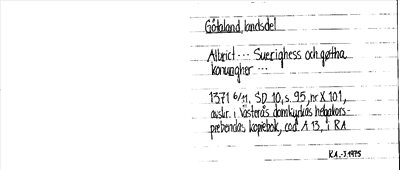 Götaland, landsdel
Albrict --- Suerighess och gøtha
konungher ---
1371 6/11. SD 10, s. 95, nr X 101,
avskr. i Västerås domkyrkas helgakors-
prebendas kopiebok, cod. A 13, i RA
R.A.-J. 1975